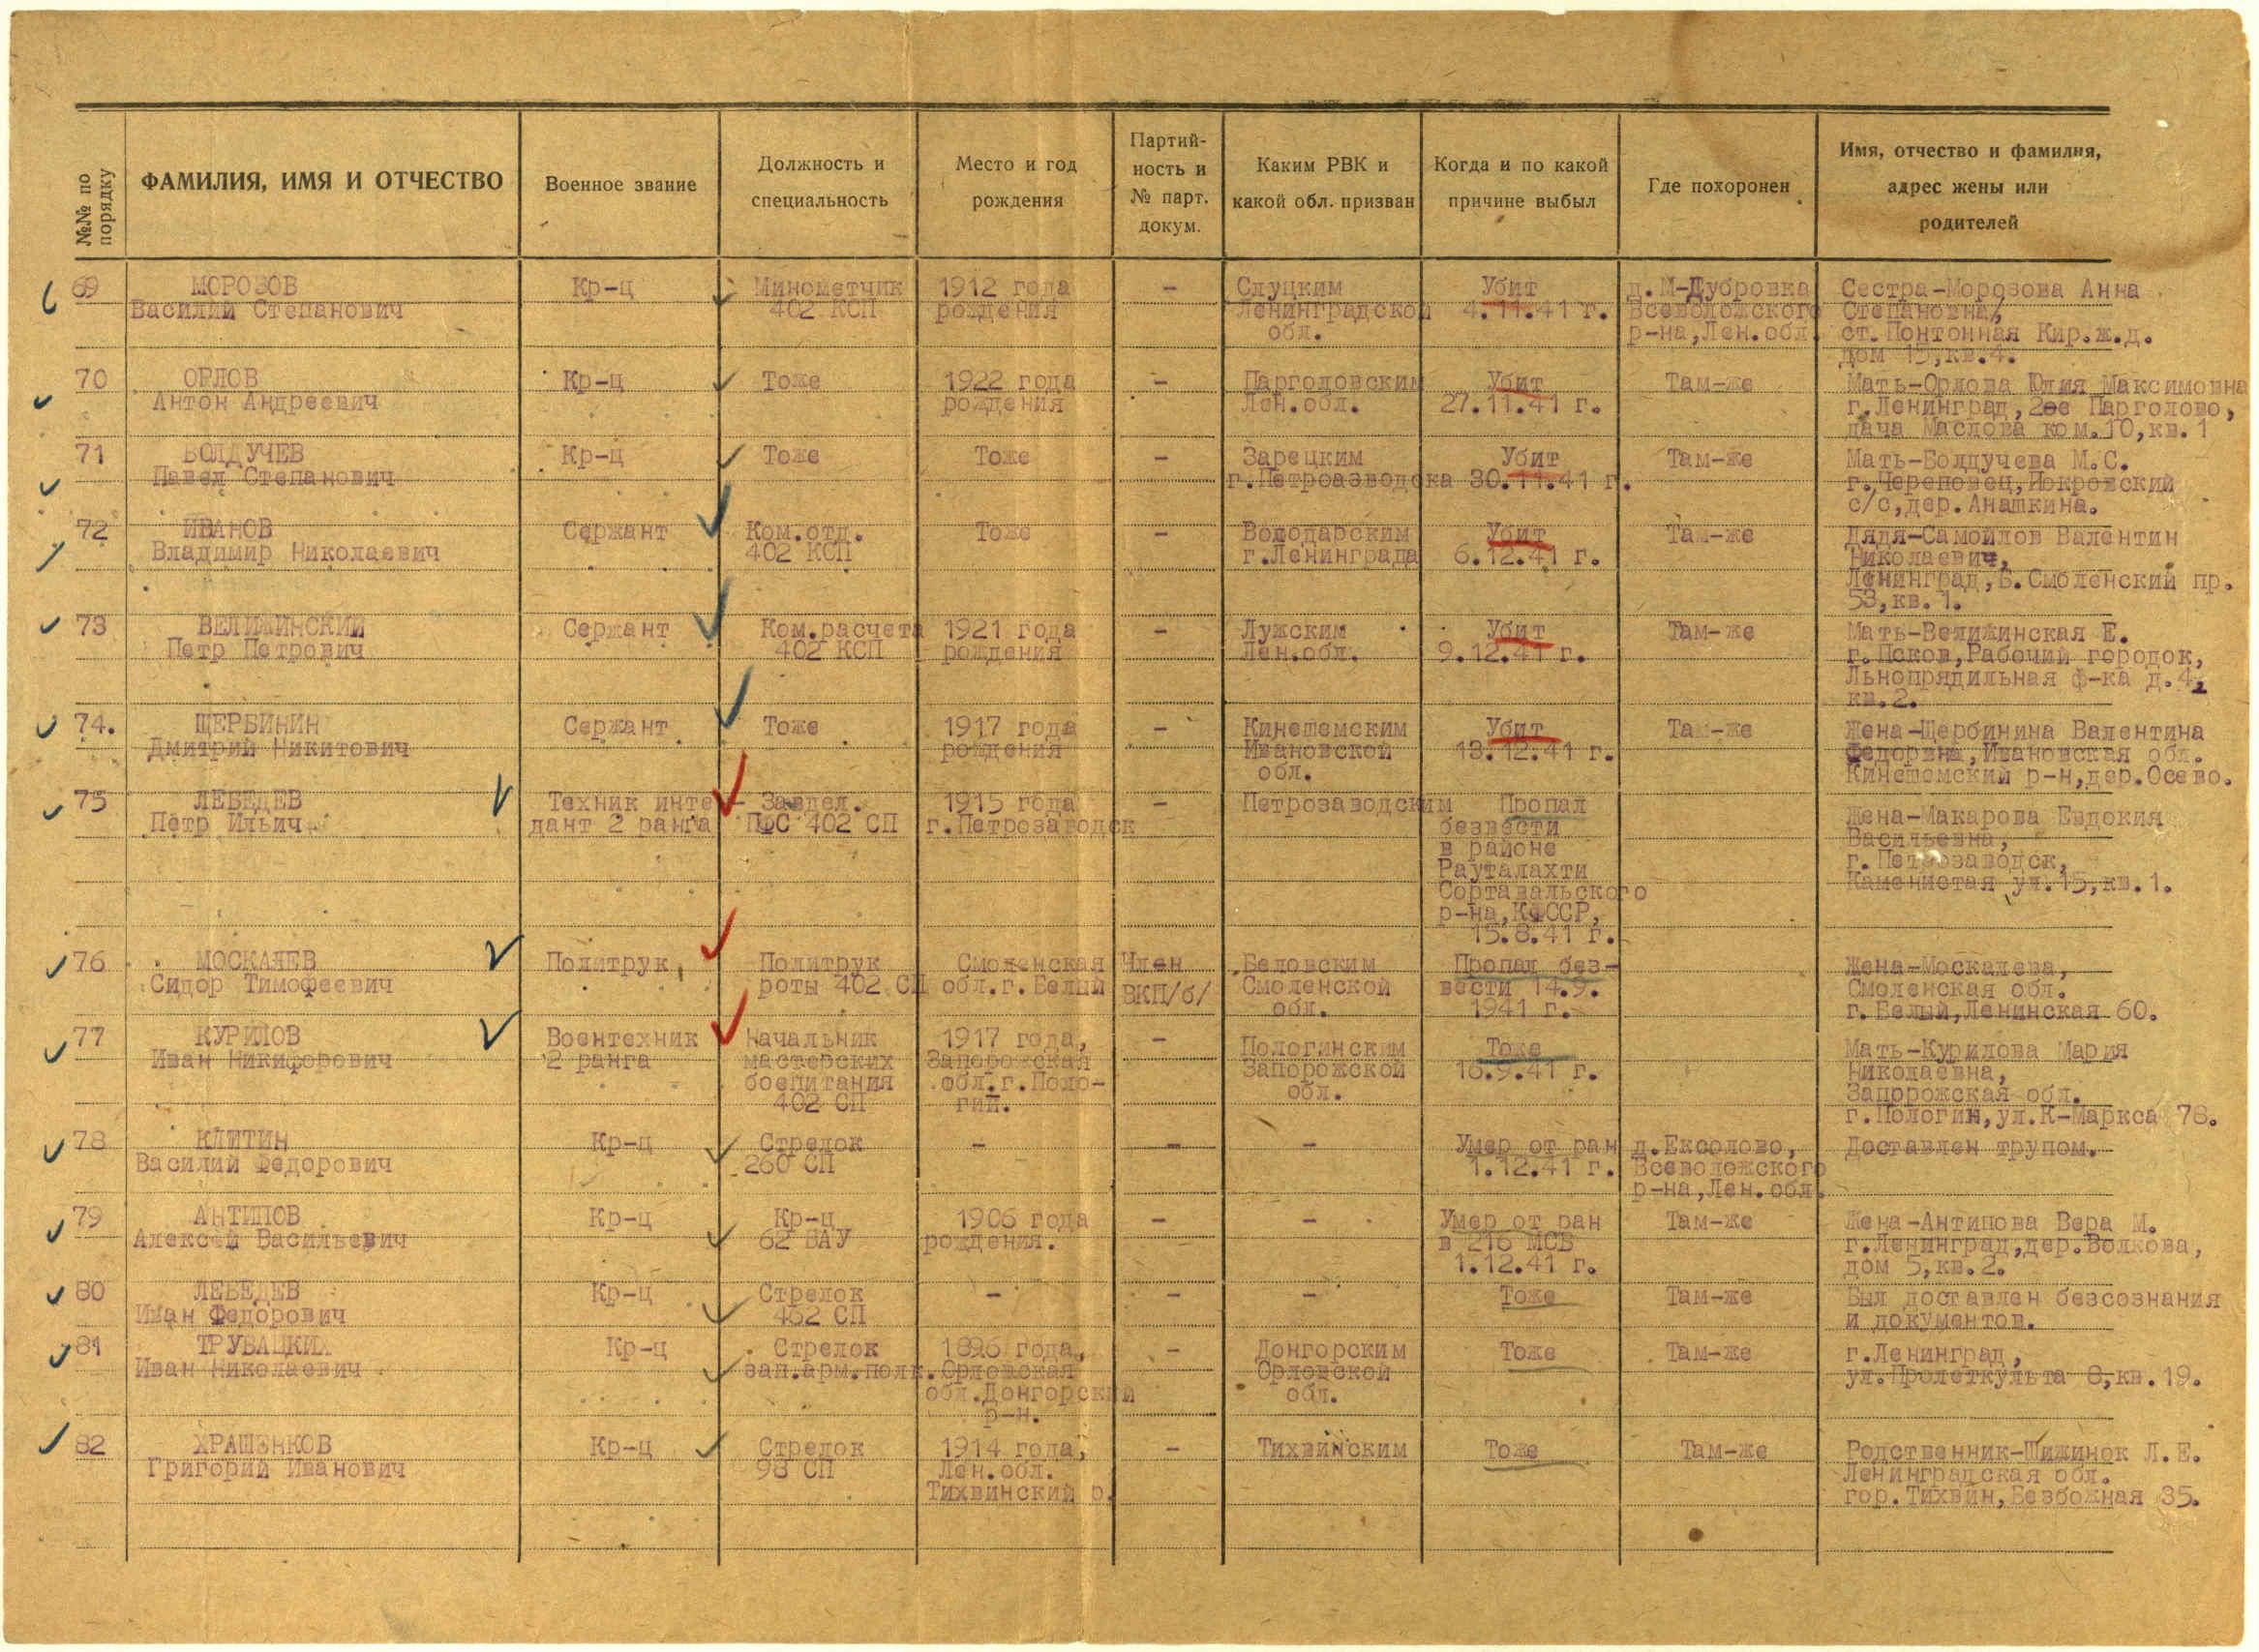 №№ по порядку
ФАМИЛИЯ, ИМЯ И ОТЧЕСТВО
Военное звание
Должность и
специальность
Место и год
рождения
Партий-
ность и
№ парт.
докум.
Каким РВК и
какой обл. призван
Когда и по какой
причине выбыл
Где похоронен
Имя, отчество и фамилия,
адрес жены или
родителей
69 МОРОЗОВ Кр-ц Минометчик 1912 года - Слуцким Убит д.М-Дубровка Сестра-Морозова Анна
Василий Степанович 402 КСП рождения Ленинградской 4.11.41 г. Всеволожского Степановна,
обл. р-на,Лен.обл. ст.Понтонная Кир.ж.д.
дом 15,кв.4.
70 ОРЛОВ Кр-ц Тоже 1922 года - Парголовским Убит Там-же Мать-Орлова Юлия Максимовна
Антон Андреевич рождения Лен.обл. 27.11.41 г. г.Ленинград,2ое Парголово,
дача Маслова ком.10,кв.1
71 БОЛДУЧЕВ Кр-ц Тоже Тоже - Зарецким Убит Там-же Мать-Болдучева М.С.
Павел Степанович г.Петроазводска 30.11.41 г. г.Череповец,Покровский
с/с,дер.Анашкина.
72 ИВАНОВ Сержант Ком.отд. Тоже - Володарским Убит Там-же Дядя-Самойлов Валентин
Владимир Николаевич 402 КСП г.Ленинграда 6.12.41 г. Николаевич,
Ленинград,Б.Смоленский пр.
53,кв.1.
73 ВЕЛИЖИНСКИЙ Сержант Ком.расчета 1921 года - Лужским Убит Там-же Мать-Велижинская Е.
Петр Петрович 402 КСП рождения Лен.обл. 9.12.41 г. г.Псков,Рабочий городок,
Льнопрядильная ф-ка д.4,
кв.2.
74. ЩЕРБИНИН Сержант Тоже 1917 года - Кинешемским Убит Там-же Жена-Щербинина Валентина
Дмитрий Никитович рождения Ивановской 13.12.41 г. Федоровна,Ивановская обл.
обл. Кинешемский р-н,дер.Осево.
75 ЛЕБЕДЕВ Техник инте- Завдел. 1915 года - Петрозаводским Пропал Жена-Макарова Евдокия
Петр Ильич дант 2 ранга ПФС 402 СП г.Петрозаводск безвести Васильевна,
в районе г.Петрозаводск,
Рауталахти Каменистая ул.15,кв.1.
Сортавальского
р-на,КФССР,
15.8.41 г.
76 МОСКАЛЕВ Политрук Политрук Смоленская Член Беловским Пропал без- Жена-Москалева,
Сидор Тимофеевич роты 402 СП обл.г.Белый ВКП/б/ Смоленской вести 14.9. Смоленская обл.
обл. 1941 г. г.Белый,Ленинская 60.
77 КУРИЛОВ Воентехник Начальник 1917 года, - Пологинским Тоже Мать-Курилова Мария
Иван Никифорович 2 ранга мастерских Запорожская Запорожской 16.9.41 г. Николаевна,
боепитания обл.г.Поло- обл. Запорожская обл.
402 СП гий. г.Пологин,ул.К-Маркса 78.
78 КЛИТИН Кр-ц Стрелок - - - Умер от ран д.Ексолово, Доставлен трупом.
Василий Федорович 260 СП 1.12.41 г. Всеволожского
р-на,Лен.обл.
79 АНТИПОВ Кр-ц Кр-ц 1906 года - - Умер от ран Там-же Жена-Антипова Вера М.
Алексей Васильевич 62 БАУ рождения. в 216 МСБ г.Ленинград,дер.Волкова,
1.12.41 г. дом 5,кв.2.
80 ЛЕБЕДЕВ Кр-ц Стрелок - - - Тоже Там-же Был доставлен безсознания
Иван Федорович 452 СП и документов.
81 ТРУБАЦКИХ Кр-ц Стрелок 1896 года, - Донгорским Тоже Там-же г.Ленинград,
Иван Николаевич зап.арм.полк. Орловская Орловской ул.Пролеткульта 8,кв.19.
обл.Донгорский обл.
р-н.
82 ХРАШЕНКОВ Кр-ц Стрелок 1914 года, - Тихвинским Тоже Там-же Родственник-Шижинок Л.Е.
Григорий Иванович 98 СП Лен.обл. Ленинградская обл.
Тихвинский р. гор.Тихвин,Безбожная 35.